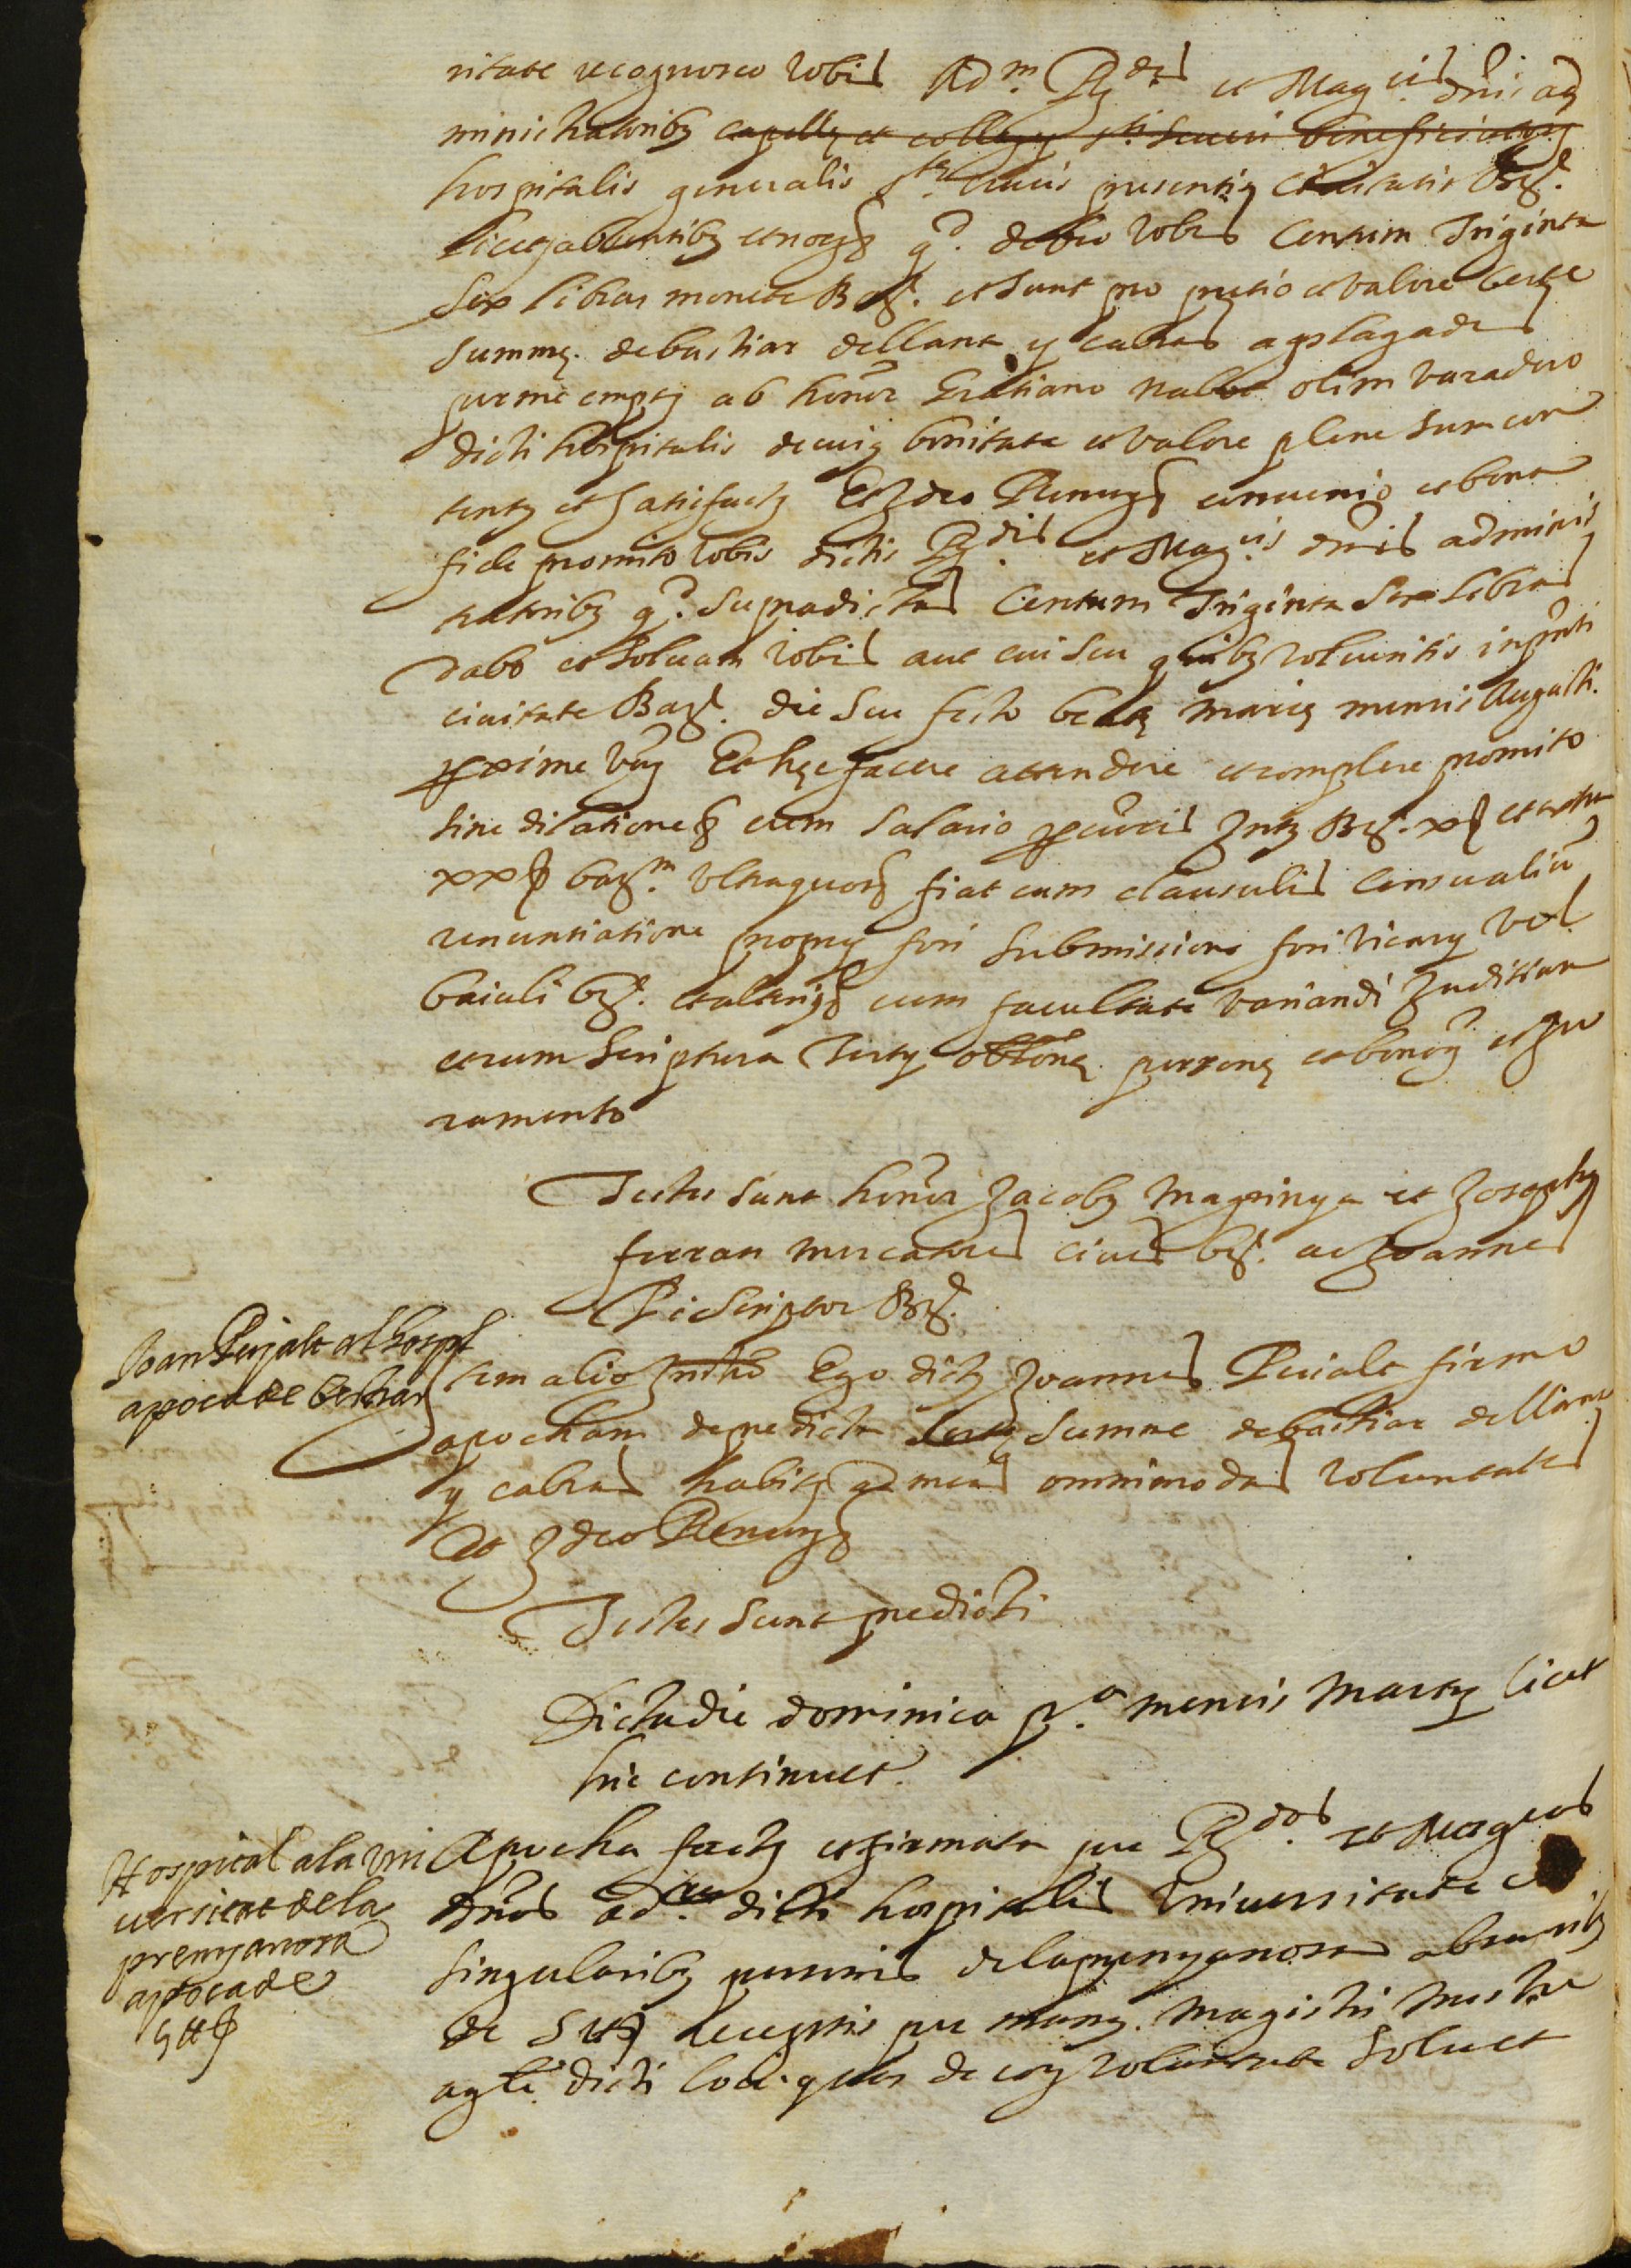 ritate recognosco vobis Ad.m R.dis et Mag.cis dnis ad
ministratoribz capelle et collegy s.ti Seueri beneficiatorum
hospitalis generalis s.te crucis presentis ciuitatis Bar.
licet absentibz etnogs q.d debeo vobis Centum Triginta
Sex libras monete Bar. et sunt pro pretio et valore certe
summe. de bestiar de llana y cabras aplagades
per me empty ab honor. Gratiano Nalbot olim
dicti hospitalis de cuiq bonitate et valore plene sum con
tentz et satisfactz Et Ideo Renuns conuenio et bona
fide promito vobis dictis R.dis et Mag.cis dnis adminis
tratoribz q.d supradictas Centum Triginta Sex libras
dabo et soluam vobis aut cui seu quibz volueritis in pnti
ciuitate Bar. die seu festo beate Marie mensis Augusti
proxime Et hec facere attendere et complere promito
sine dilatione cum salario procuris Intz Bar. x s et extra
xx s bar.m Vltra quos fiat cum clausulis Censualiu
renuntiatione propry fori submissione fori vicary vel
baiuli bar. et alterigs cum facultate variandi Juditium
et cum scriptura Terty obbone persone et bonoru et Ju
ramento
Testes sunt honor. Jacobz Maprinya et Josephz
ferran mercatores ciues bar. ac Joannes
Pi Scriptor Bar.
Joan Pujalt al hospl
apoca de bestiar
Item alio Instro Ego dictz Joannes Puialt firmo
apocham de predicta certe summe de bastiar de llana
y cabras habite ad meas omnimodas voluntates
Et Ideo Renuns
Testes sunt predicti
Dicta die dominica p.a mensis Marty licet
hic continuet.
Hospital a la vni
uersitat de la
premyanosa
apoca de
5 ll s
Apocha facta et firmata per R.dos et Mag.cos
dnos ad.res dicti hospitalis Vniuersitate et
singularibz personis de la premyanosa absentibz
de 5 ll s receptis per manz. Magistri Mestre
agti dicti loci. quas de eorz voluntate soluet